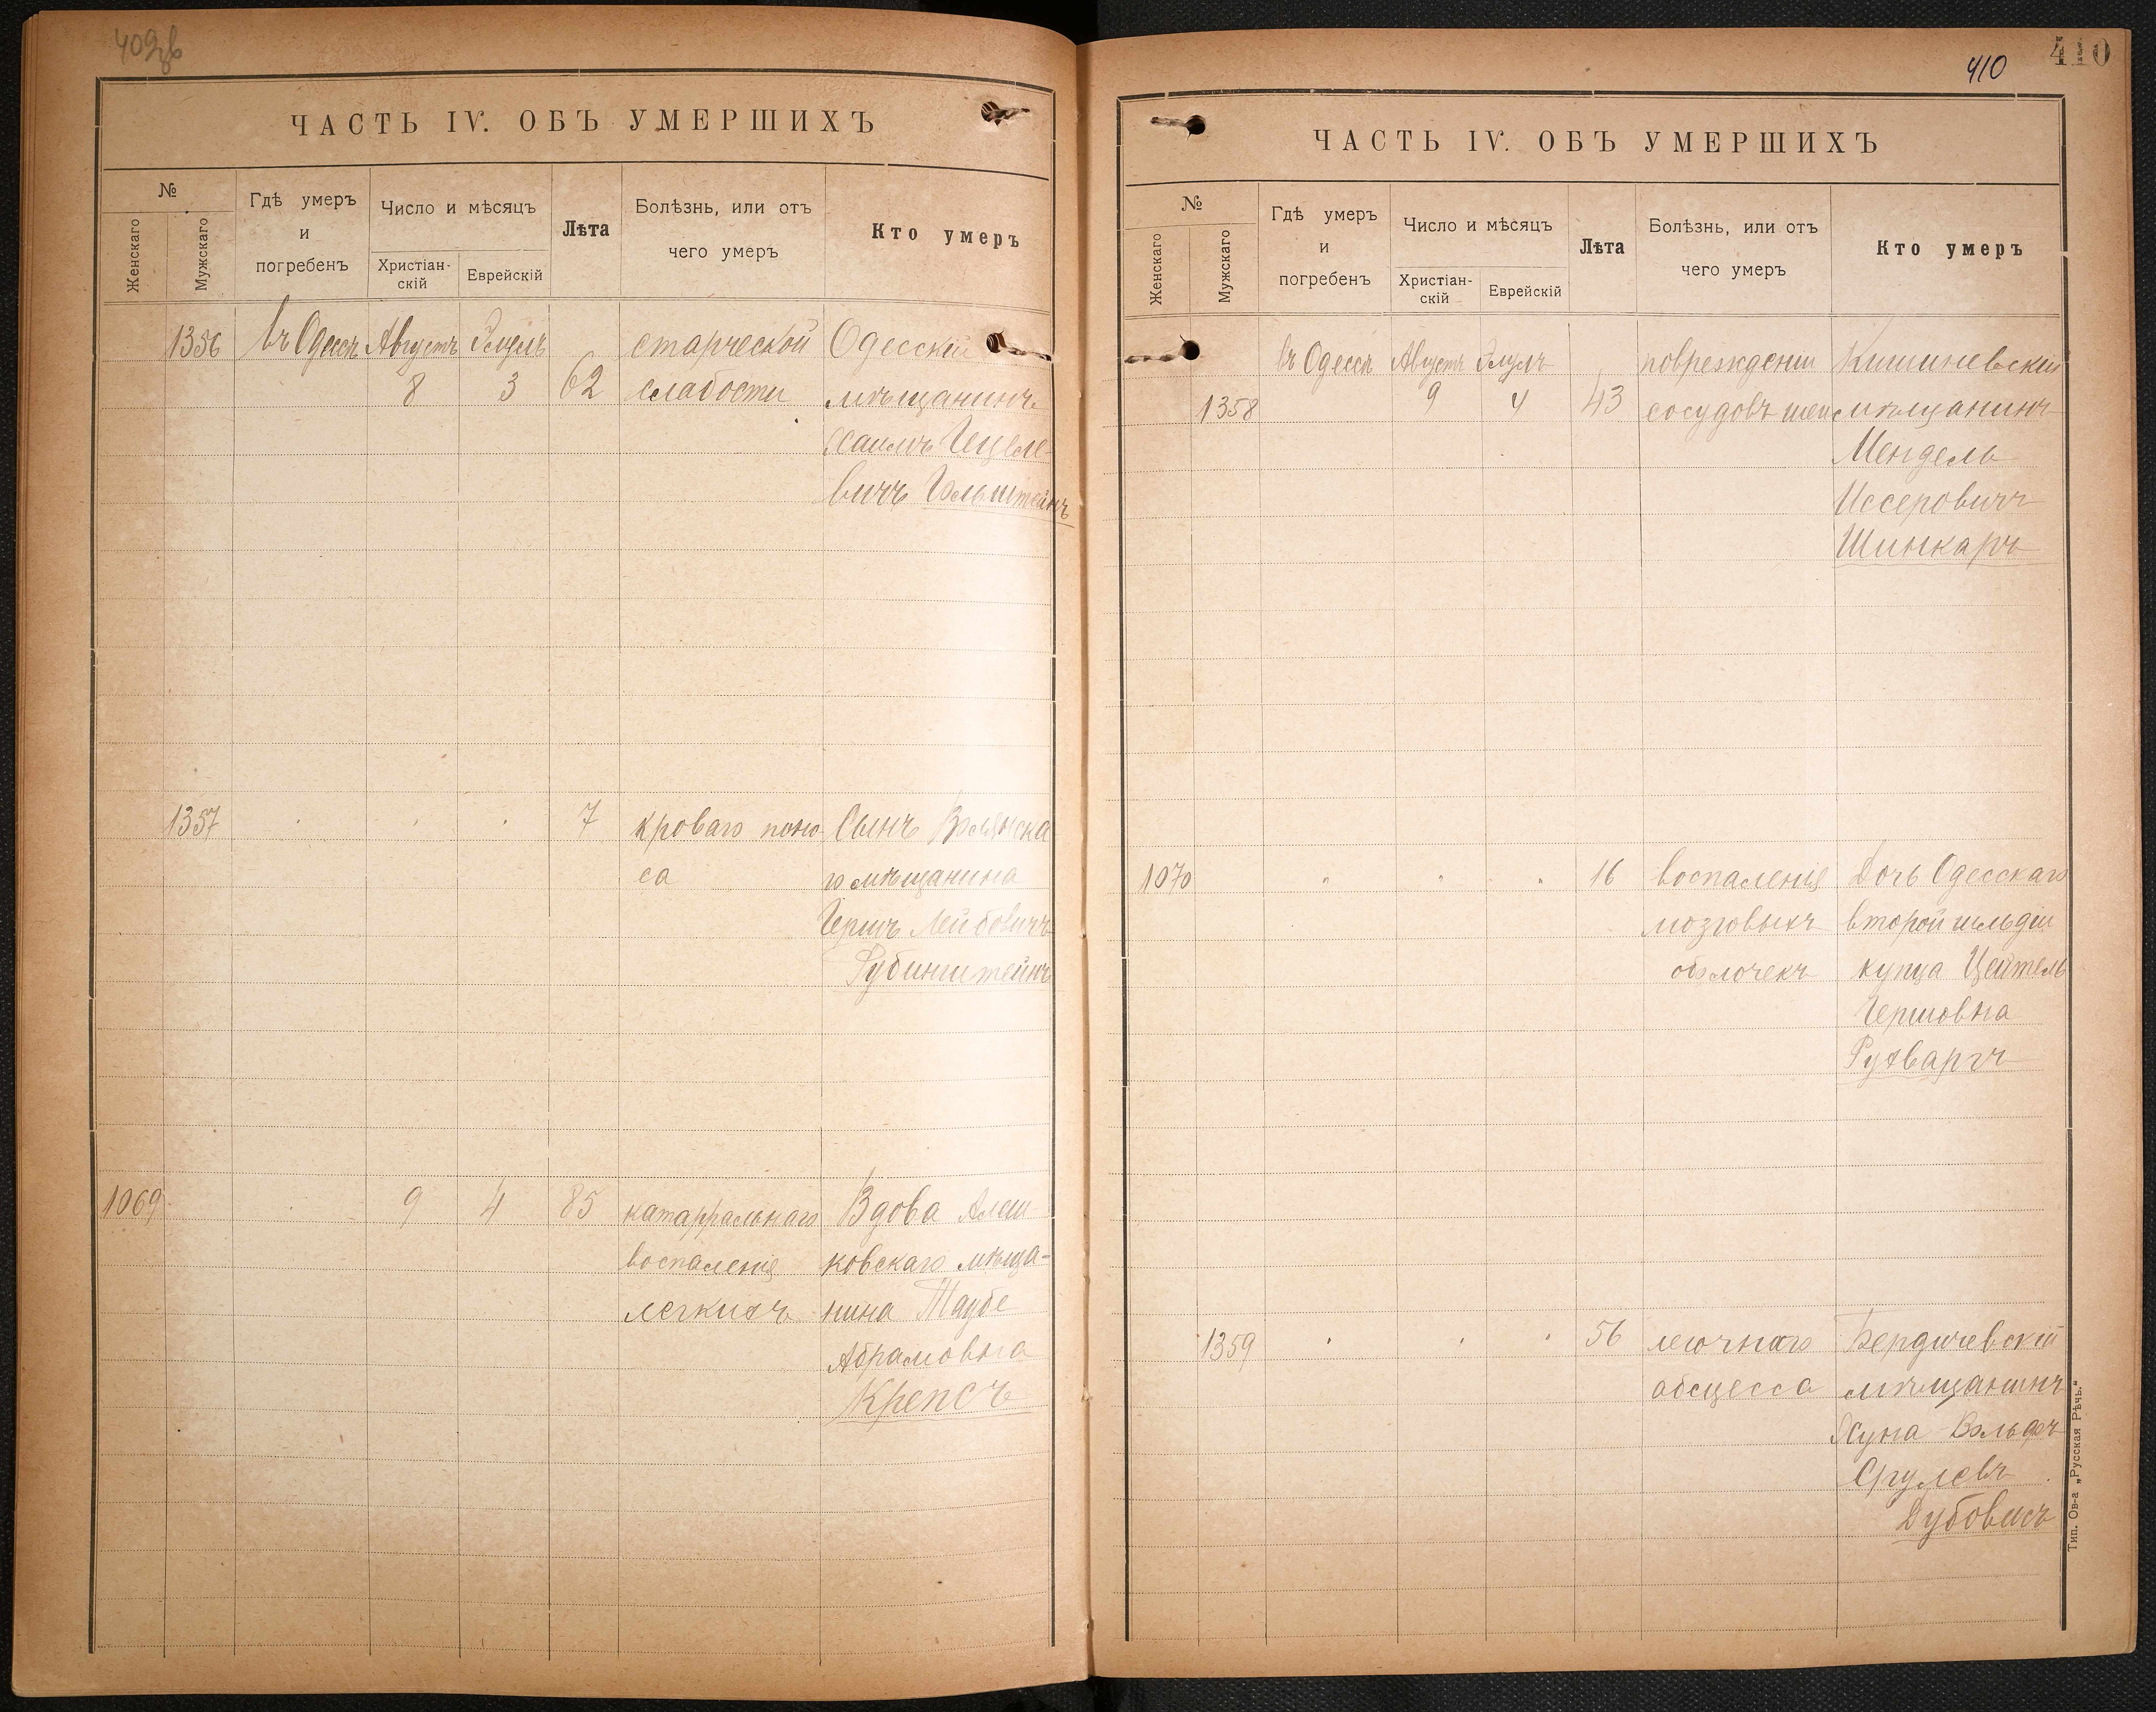 409об
ЧАСТЬ IV. ОБЪ УМЕРШИХЪ
№
Женскаго
Мужскаго
Гдѣ умеръ
и
погребенъ
Число и мѣсяцъ
Христіан-
скій
Еврейскій
Лѣта
Болѣзнь, или отъ
чего умеръ
Кто умеръ
1356 въ Одессѣ Августъ Элулъ старческой Одесскій
8 3 62 слабости мѣщанинъ
Хаимъ Гецеле-
вичъ Гольштейнъ
1357 7 кроваго поно- Сынъ Волынска-
са го мѣщанина
Гершъ Лейбовичъ
Рубинштейнъ
1069 9 4 85 катарральнаго Вдова Алеш-
воспаленія ковскаго мѣща-
легкихъ нина Таубе
Абрамовна
Крепсъ
410
410
ЧАСТЬ IV. ОБЪ УМЕРШИХЪ
№
Женскаго
Мужскаго
Гдѣ умеръ
и
погребенъ
Число и мѣсяцъ
Христіан-
скій
Еврейскій
Лѣта
Болѣзнь, или отъ
чего умеръ
Кто умеръ
въ Одессѣ Августъ Элулъ поврежденіи Кишиневскій
1358 9 4 43 сосудовъ шеи мѣщанинъ
Мендель
Иссеровичъ
Шинкаръ
1070 " " " 16 воспаленія Дочь Одесскаго
мозговыхъ второй гильдіи
оболочекъ купца Цейтель
Гершовна
Рухваргъ
1359 " " " 56 легочнаго Бердичевскій
абсцесса мѣщанинъ
Хуна Вольфъ
Срулевъ
Дубовисъ
Тип. Ов-а „Русская Рѣчь."